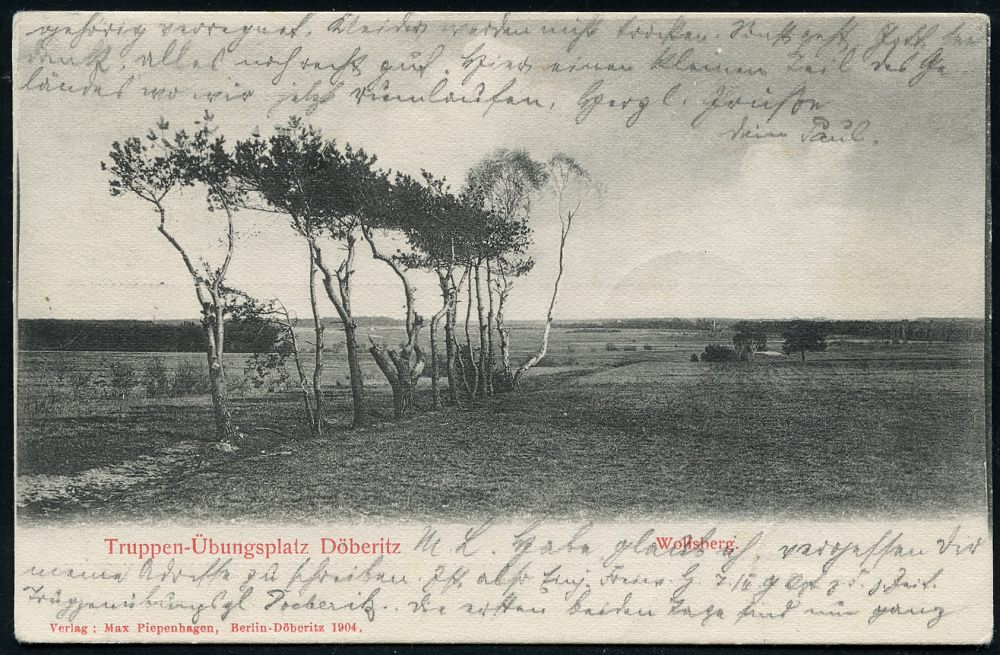 gehörig verregnet. Kleider werden nicht trocken. Sonst geht, Gott sei
dank, alles noch recht gut. Hier einen kleinen Teil des Ge-
ländes wo wir jetzt rumlaufen. Herzl. Grüße
dein Paul.
Truppen-Übungsplatz Döberitz
Wolfsberg.
M. L. Habe glaub ich, vergessen Dir
meine Adresse zu schreiben. Ist also Einj. Freiw. G. z. Zeit.
Truppenübungspl. Doeberitz. Die ersten beiden Tage sind wir ganz
Verlag: Max Piepenhagen, Berlin-Döberitz 1904.